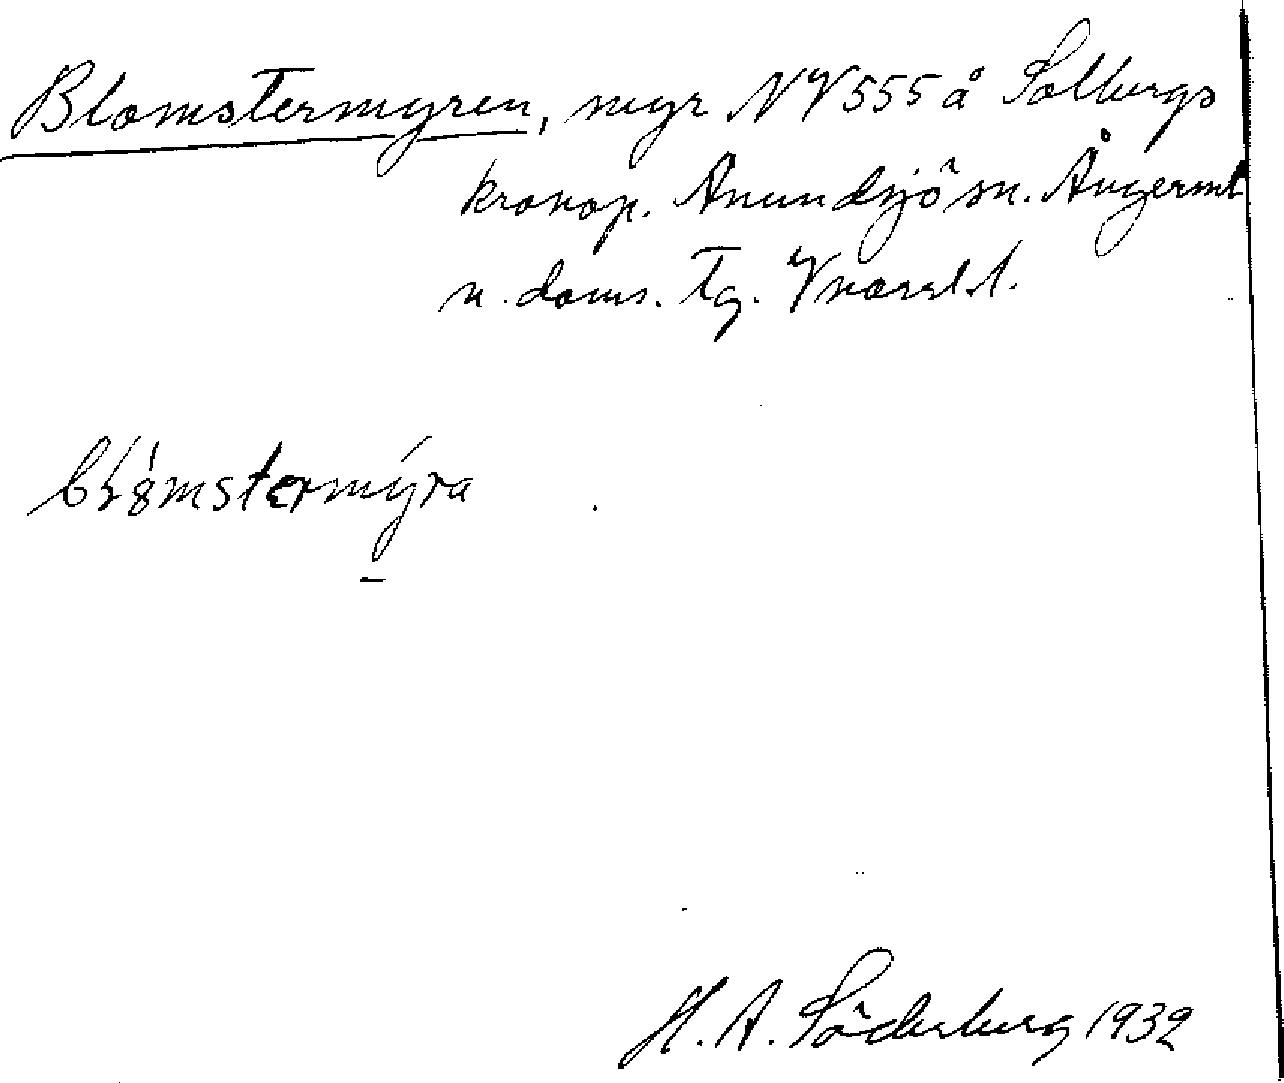 Blomstermyren, myr NV 555 å Solbergs
kronop. Anundsjö sn. Ångerml
n. doms. Tg.
mýra
H. A. Söderberg 1932